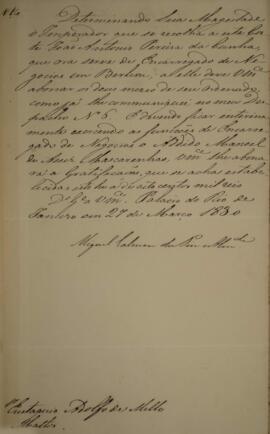 Determinando Sua Magestade
o Imperador que se recolha a esta Cor
te João Antonio Pereira da Cunha,
que ora serve de Encarregado de Ne
gocios em Berlim, a elle deve Vmce
abonar os dous mezes de seu ordenado
como já lhe communiquei no meu Des
pacho Nº 6. E devendo ficar interina
mente exercendo as funções de Encarre
gado de Negocios o Addido Manoel
de Mascarenhas, Vmce lhe abona
rá a Gratificação, que se acha estabe
lecida de oito centos mil reis
Ds. Ge. a Vmce. Palacio do Rio de
Janeiro em 27 de Março 1830
Miguel Calmon du Pin e Almda
Eustaquio Adolfo de Mello
Mattos